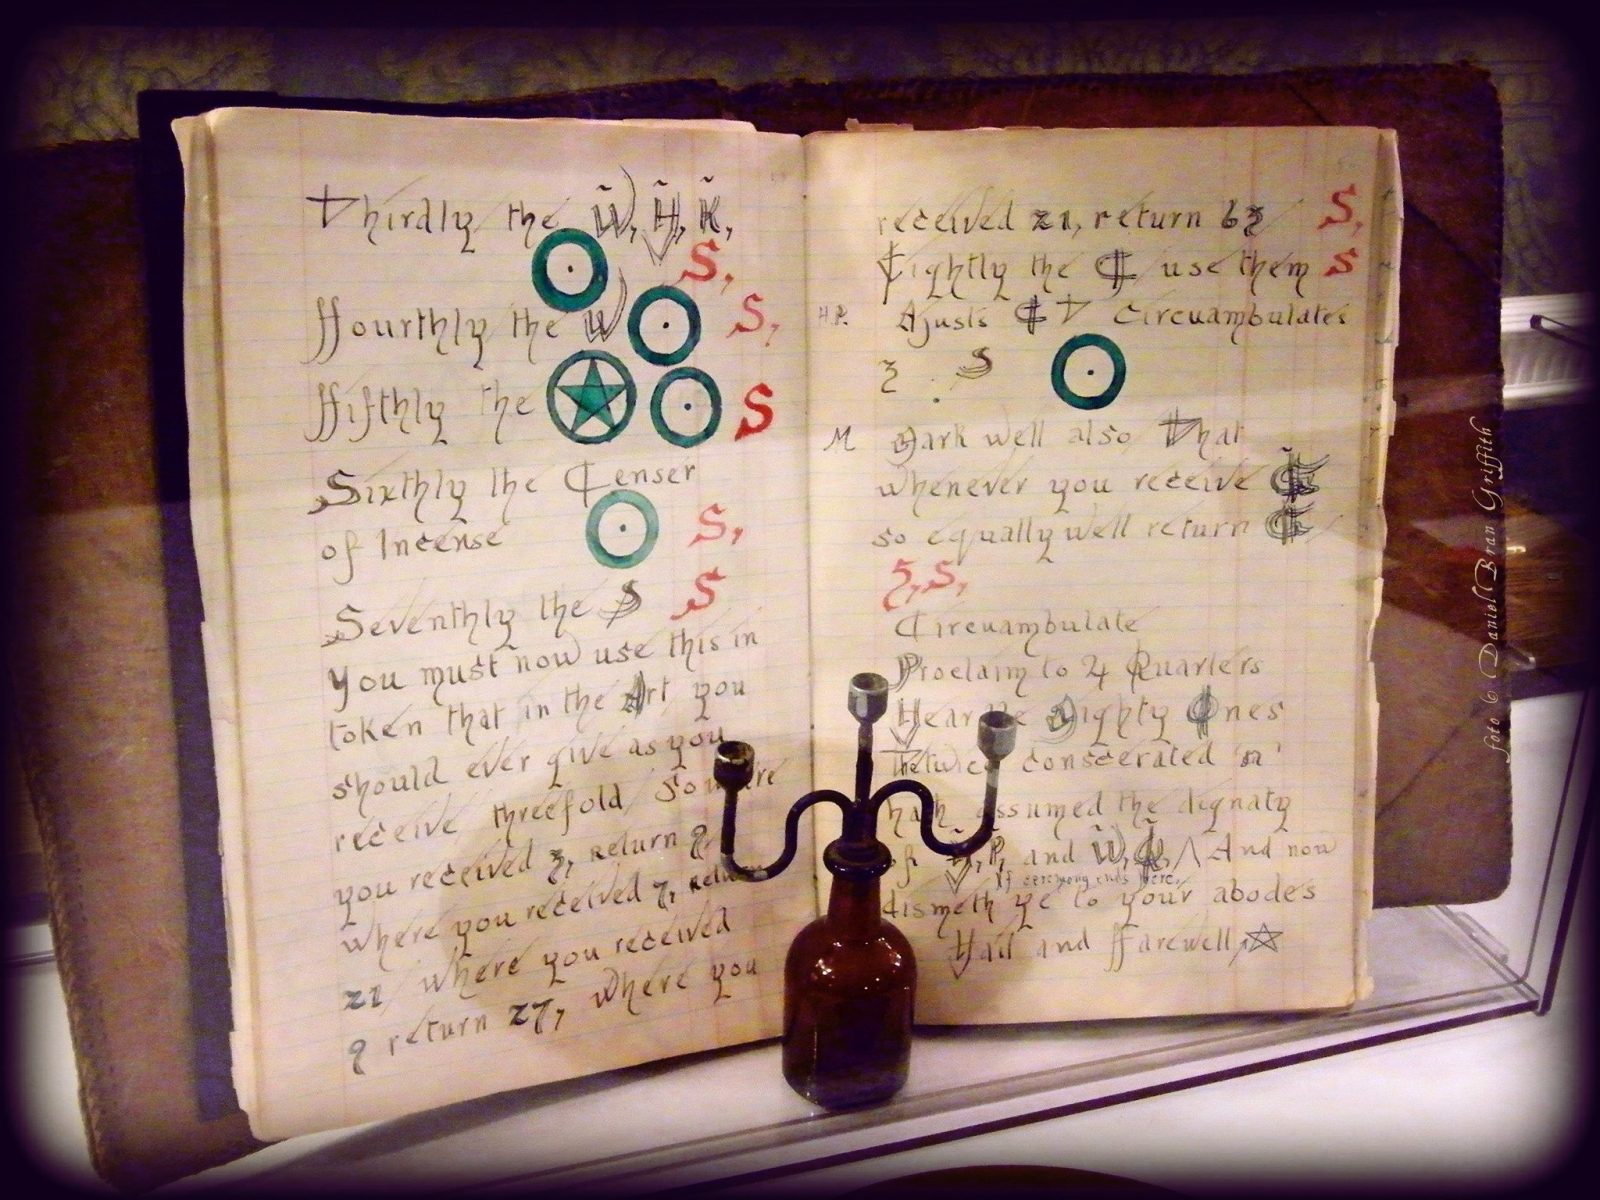 Thirdly the W, H, K,
S,
ffourthly the W S,
ffifthly the S
Sixthly the Censer
of Incense S,
Seventhly the S S
You must now use this in
token that in the Art you
should ever give as you
receive threefold So where
you received 3, return 9
where you received 7, return
21 where you received
9 return 27, where you
received 21, return 63 S,
Eightly the use them S
H.P. Ajusts Circuambulates
3 . S
M Mark well also That
whenever you receive
so equally well return
5, S,
Circuambulate
Proclaim to 4 Quarters
Hear Ye Mighty Ones
The twice conscerated 'n'
hath assumed the dignaty
of H, P, and W, Q, And now
If ceremony ends here,
dismeth ye to your abodes
Hail and ffarewell
foto © Daniel Bran Griffith